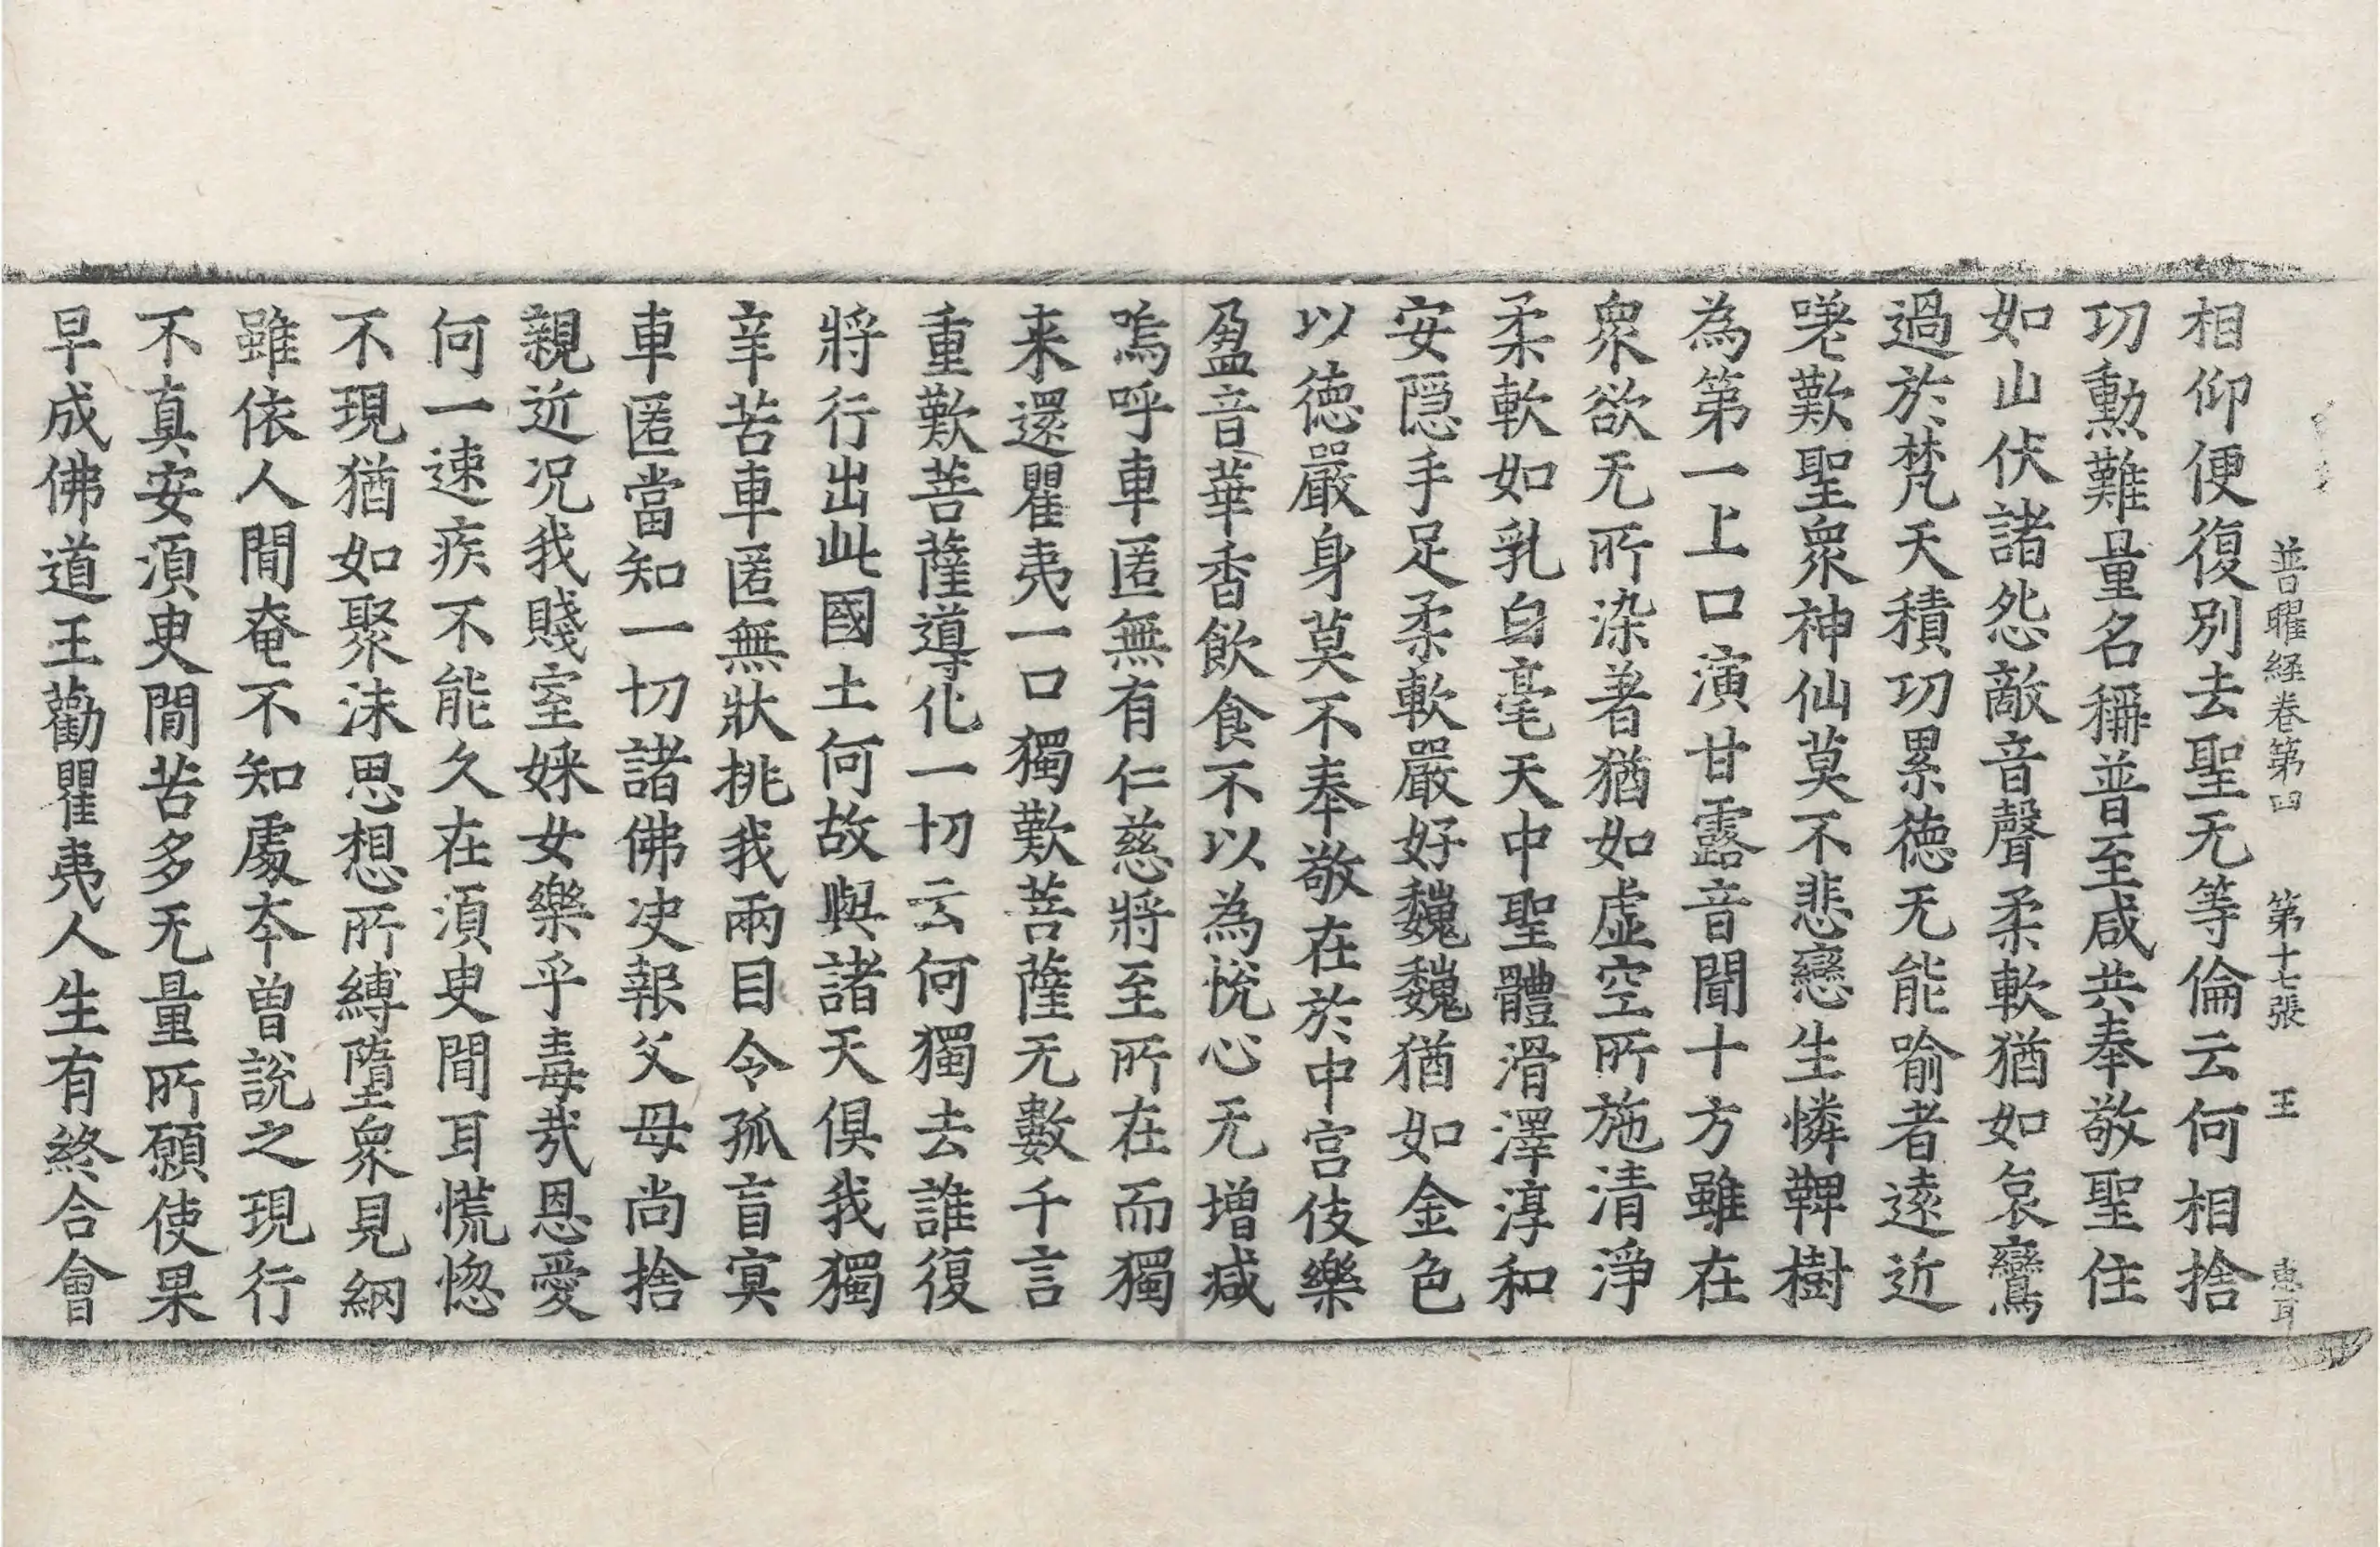 普曜經卷第四 第十七張 王 惠耳
相仰便復別去聖无等倫云何相捨
功勳難量名稱普至咸共奉敬聖住
如山伏諸怨敵音聲柔軟猶如哀鸞
過於梵天積功累德无能喻者遠近
嗟歎聖衆神仙莫不悲戀生憐鞞樹
為第一上口演甘露音聞十方雖在
衆欲无所染著猶如虛空所施清淨
柔軟如乳白毫天中聖體滑澤淳和
安隱手足柔軟嚴好巍巍猶如金色
以德嚴身莫不奉敬在於中宮伎樂
盈音華香飲食不以為悅心无增減
嗚呼車匿無有仁慈將至所在而獨
来還瞿夷一口獨歎菩薩无數千言
重歎菩薩導化一切云何獨去誰復
將行出此國土何故與諸天俱我獨
辛苦車匿無狀挑我兩目令孤盲冥
車匿當知一切諸佛決報父母尚捨
親近况我賤室婇女樂乎毒哉恩愛
何一速疾不能久在須臾間耳慌惚
不現猶如聚沫思想所縛墮衆見網
雖依人間奄不知處本曾說之現行
不真安須臾間苦多无量所願使果
早成佛道王勸瞿夷人生有終合會